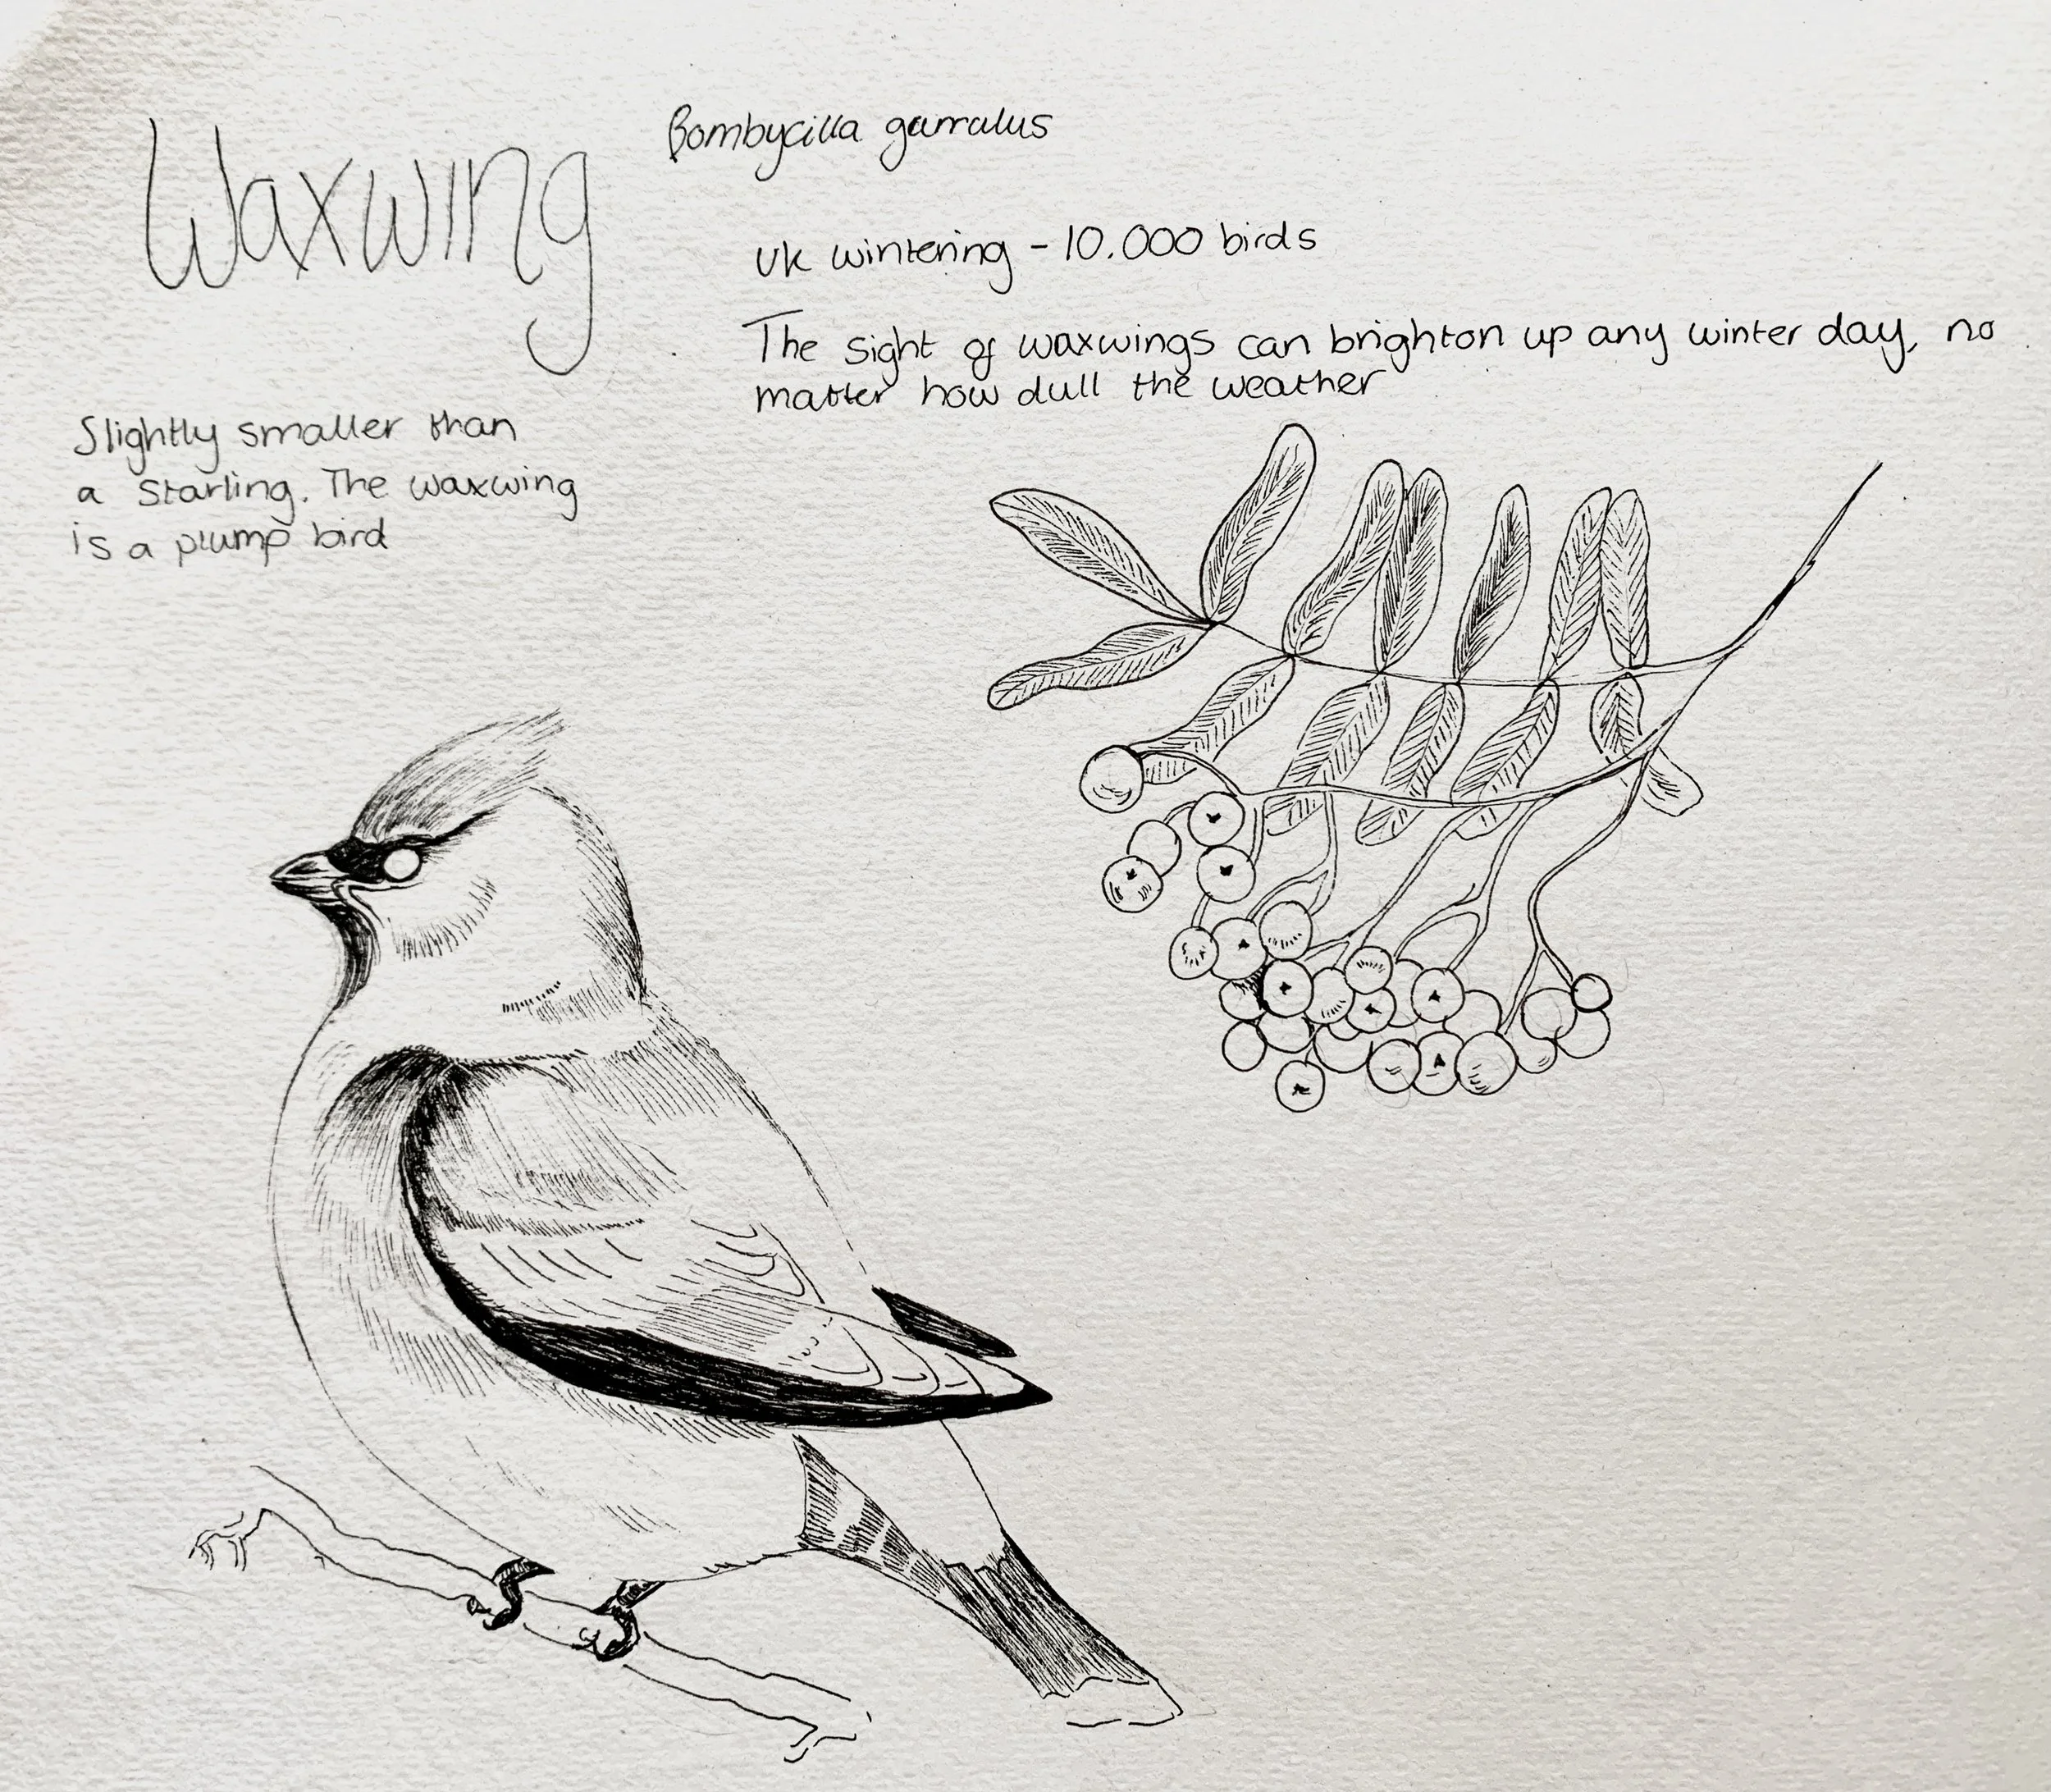 Waxwing
Bombycilla garralus
UK wintering - 10.000 birds
The sight of waxwings can brighton up any winter day, no
matter how dull the weather
Slightly smaller than
a Starling. The waxwing
is a plump bird